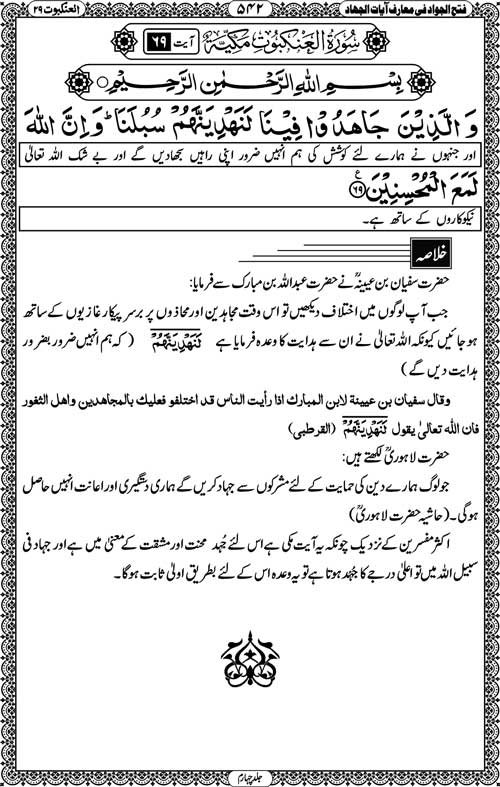 فتح الجواد فی معارف آیات الجهاد ۵۴۲ العنکبوت ۲۹
سُوْرَةُ الْعَنْكَبُوْتِ مَكِّيَّةٌ آیت ۶۹
بِسْمِ اللهِ الرَّحْمٰنِ الرَّحِيْمِ
وَالَّذِيْنَ جَاهَدُوْا فِيْنَا لَنَهْدِيَنَّهُمْ سُبُلَنَا ؕ وَاِنَّ اللهَ
اور جنہوں نے ہمارے لئے کوشش کی ہم انہیں ضرور اپنی راہیں سجھادیں گے اور بے شک اللہ تعالیٰ
لَمَعَ الْمُحْسِنِيْنَ ﴿۶۹﴾ ع
نیکوکاروں کے ساتھ ہے۔
خلاصہ
حضرت سفیان بن عیینہؒ نے حضرت عبداللہ بن مبارک سے فرمایا:
جب آپ لوگوں میں اختلاف دیکھیں تو اس وقت مجاہدین اور محاذوں پر برسر پیکار غازیوں کے ساتھ
ہو جائیں کیونکہ اللہ تعالیٰ نے ان سے ہدایت کا وعدہ فرمایا ہے لَنَهْدِيَنَّهُمْ (کہ ہم انہیں ضرور بضرور
ہدایت دیں گے)
وقال سفيان بن عيينة لابن المبارك اذا رأيت الناس قد اختلفو فعليك بالمجاهدين واهل الثغور
فان الله تعالىٰ يقول لَنَهْدِيَنَّهُمْ (القرطبی)
حضرت لاہوریؒ لکھتے ہیں:
جو لوگ ہمارے دین کی حمایت کے لئے مشرکوں سے جہاد کریں گے ہماری دستگیری اور اعانت انہیں حاصل
ہوگی۔ (حاشیہ حضرت لاہوریؒ)
اکثر مفسرین کے نزدیک چونکہ یہ آیت مکی ہے اس لئے جُہد محنت اور مشقت کے معنیٰ میں ہے اور جہاد فی
سبیل اللہ میں تو اعلیٰ درجے کا جُہد ہوتا ہے تو یہ وعدہ اس کے لئے بطریق اولیٰ ثابت ہوگا۔
جلد چہارم